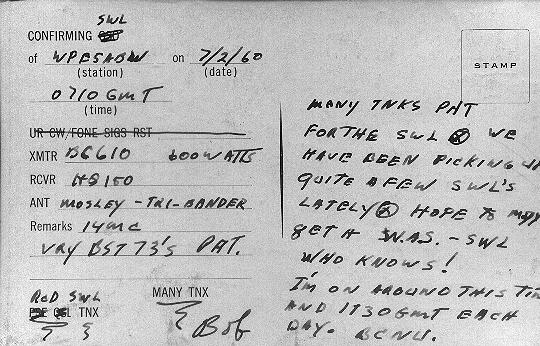 SWL
CONFIRMING QSO
of WPE5ABW on 7/2/60
(station) (date)
0710 GMT
(time)
UR CW/FONE SIGS RST
XMTR BC610 600WATTS
RCVR HQ150
ANT MOSLEY - TRI-BANDER
Remarks 14MC
VRY BST 73'S PAT.
RCD SWL
PSE QSL TNX
MANY TNX
Bob
STAMP
MANY TNKS PAT
FOR THE SWL WE
HAVE BEEN PICKING UP
QUITE A FEW SWL'S
LATELY HOPE TO
GET A W.A.S. - SWL
WHO KNOWS!
I'M ON AROUND THIS TIM
AND 1130 GMT EACH
DAY. BCNU.